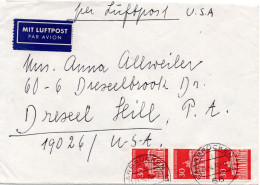 per Luftpost U.S.A
MIT LUFTPOST
PAR AVION
Mrs. Anna Allweiler
60-6 Drexelbrook Dr.
Drexel Hill, P.A.
19026/ U.S.A.
30